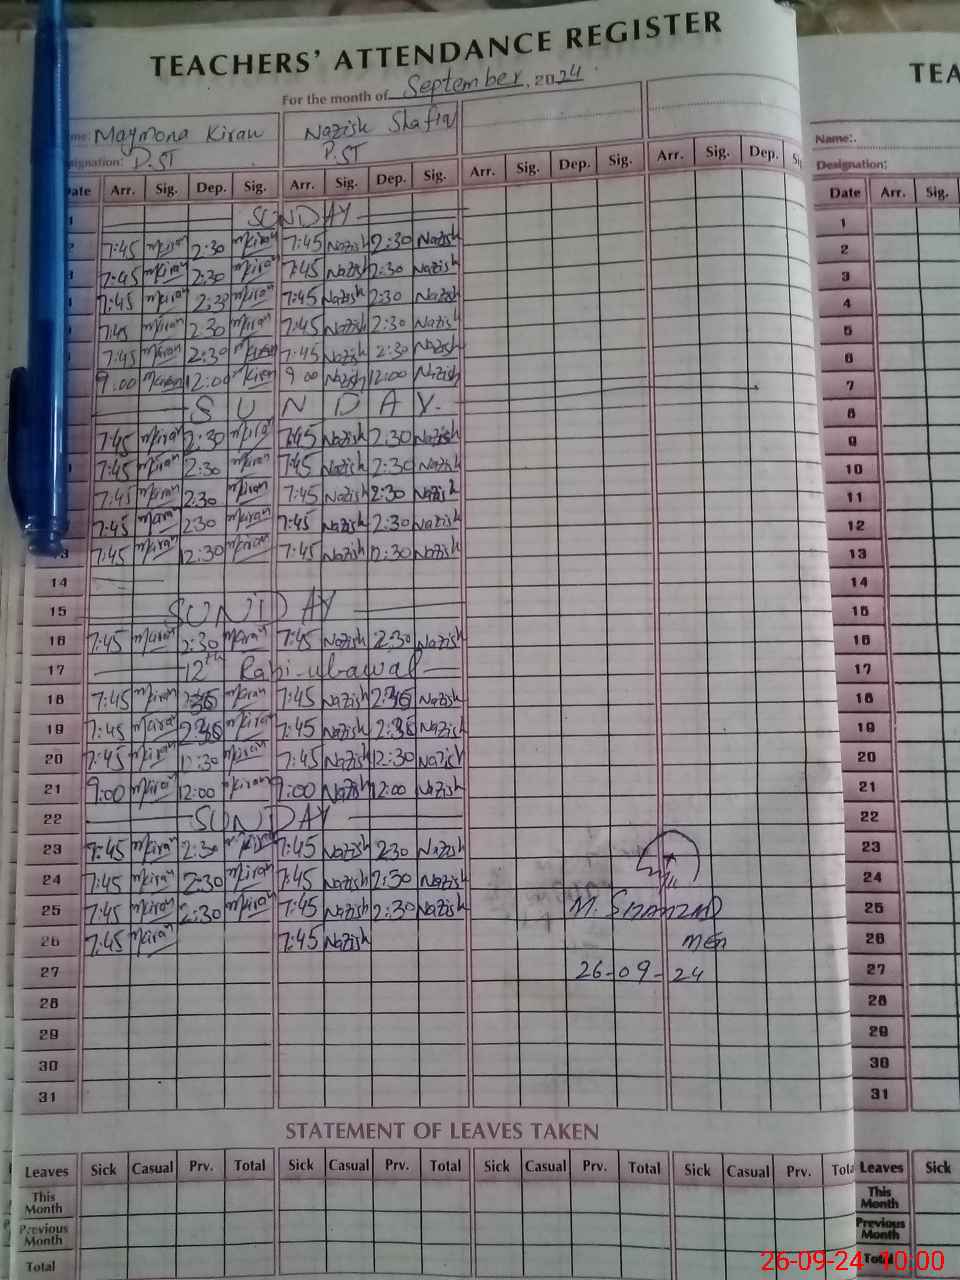 TEACHERS' ATTENDANCE REGISTER
For the month of September, 2024
Maymona Kiran Nazish Shafiq
P.ST P.ST
Arr. Sig. Dep. Sig. Arr. Sig. Dep. Sig. Arr. Sig. Dep. Sig. Arr. Sig. Dep.
SUNDAY
7:45 mkiran 2:30 mkiran 7:45 Nazish 2:30 Nazish
7:45 mkiran 2:30 mkiran 7:45 Nazish 2:30 Nazish
7:45 mkiran 2:30 mkiran 7:45 Nazish 2:30 Nazish
7:45 mkiran 2:30 mkiran 7:45 Nazish 2:30 Nazish
7:45 mkiran 2:30 mkiran 7:45 Nazish 2:30 Nazish
9:00 mkiran 12:00 mkiran 9:00 Nazish 12:00 Nazish
SUNDAY
7:45 mkiran 2:30 mkiran 7:45 Nazish 2:30 Nazish
7:45 mkiran 2:30 mkiran 7:45 Nazish 2:30 Nazish
7:45 mkiran 2:30 mkiran 7:45 Nazish 2:30 Nazish
7:45 mkiran 2:30 mkiran 7:45 Nazish 2:30 Nazish
13 7:45 mkiran 12:30 mkiran 7:45 Nazish 12:30 Nazish
14
15 SUNDAY
16 7:45 mkiran 2:30 mkiran 7:45 Nazish 2:30 Nazish
17 12th Rabi-ul-awal
18 7:45 mkiran mkiran 7:45 Nazish Nazish
19 7:45 mkiran mkiran 7:45 Nazish Nazish
20 7:45 mkiran 12:30 mkiran 7:45 Nazish 12:30 Nazish
21 9:00 mkiran 12:00 mkiran 9:00 Nazish 12:00 Nazish
22 SUNDAY
23 7:45 mkiran 2:30 mkiran 7:45 Nazish 2:30 Nazish
24 7:45 mkiran 2:30 mkiran 7:45 Nazish 2:30 Nazish
25 7:45 mkiran 2:30 mkiran 7:45 Nazish 2:30 Nazish M. SHAHZAD
26 7:45 mkiran 7:45 Nazish MEA
27 26-09-24
28
29
30
31
STATEMENT OF LEAVES TAKEN
Leaves Sick Casual Prv. Total Sick Casual Prv. Total Sick Casual Prv. Total Sick Casual Prv.
This Month
Previous Month
Total
TEA
Name:.
Designation:
Date Arr. Sig.
1
2
3
4
5
6
7
8
9
10
11
12
13
14
15
16
17
18
19
20
21
22
23
24
25
26
27
28
29
30
31
Leaves Sick
This Month
Previous Month
Total
26-09-24 10:00